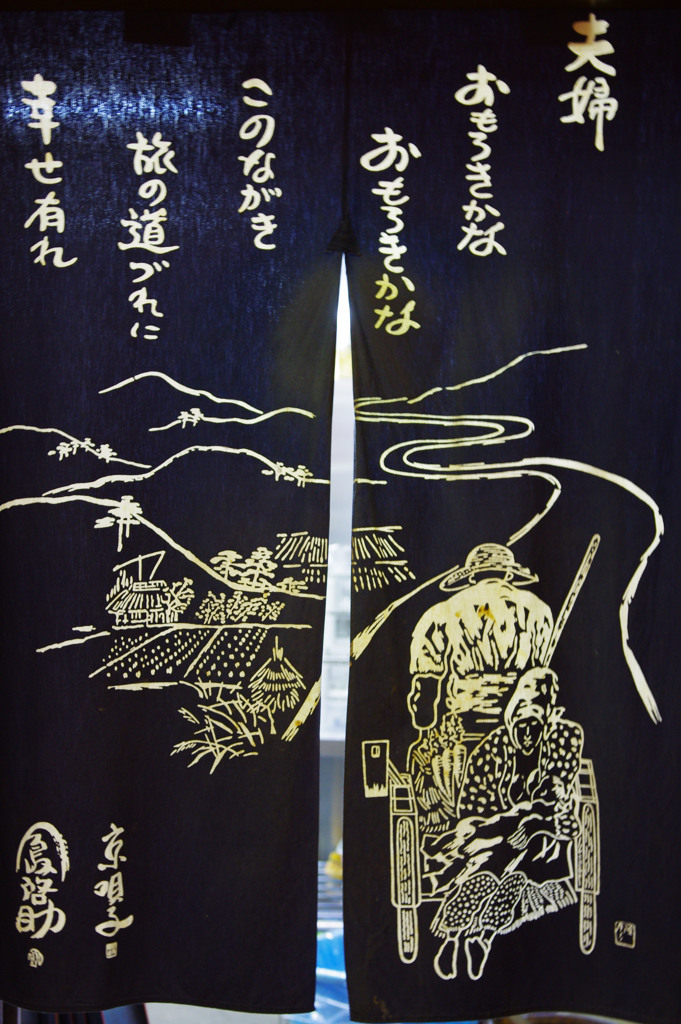 夫婦
おもろきかな
おもろきかな
このながき
旅の道づれに
幸せ有れ
京唄子
鳳啓助